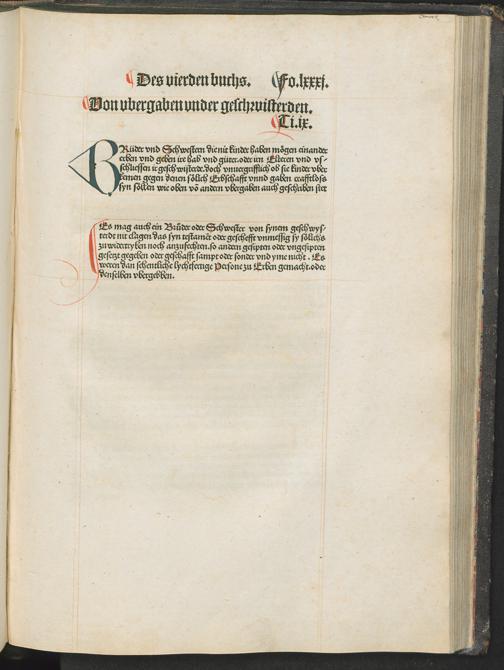 Des vierden buchs. Fo.lxxxj.
Von vbergaben vnder geschwisterden.
Ti.ix.
BRüder vnd Schwestern die nit kinder haben mögen einander
erben vnd geben ire hab vnd güter. oder im Elteren vnd vſ-
schliessen ir geschwisterde. doch vnuergrifflich ob sie kinder vber
kemen gegen denen sölich Erbschafft vnnd gaben crafftloss
syn söllen wie oben vō andern vbergaben auch geschriben stet
Es mag auch ein Brüder oder Schwester von synem geschwys-
terdt nit clagen das syn testamēt oder geschefft vnmessig sy sölichs
zu widertryben noch anzufechten. so andern gesipten oder vngesipten
gesetzt gegeben oder geschafft sampt oder sonder vnd yme nicht. Es
weren dan schentliche lychtfertige Persone zu Erben gemacht. oder
denselben vbergebben.